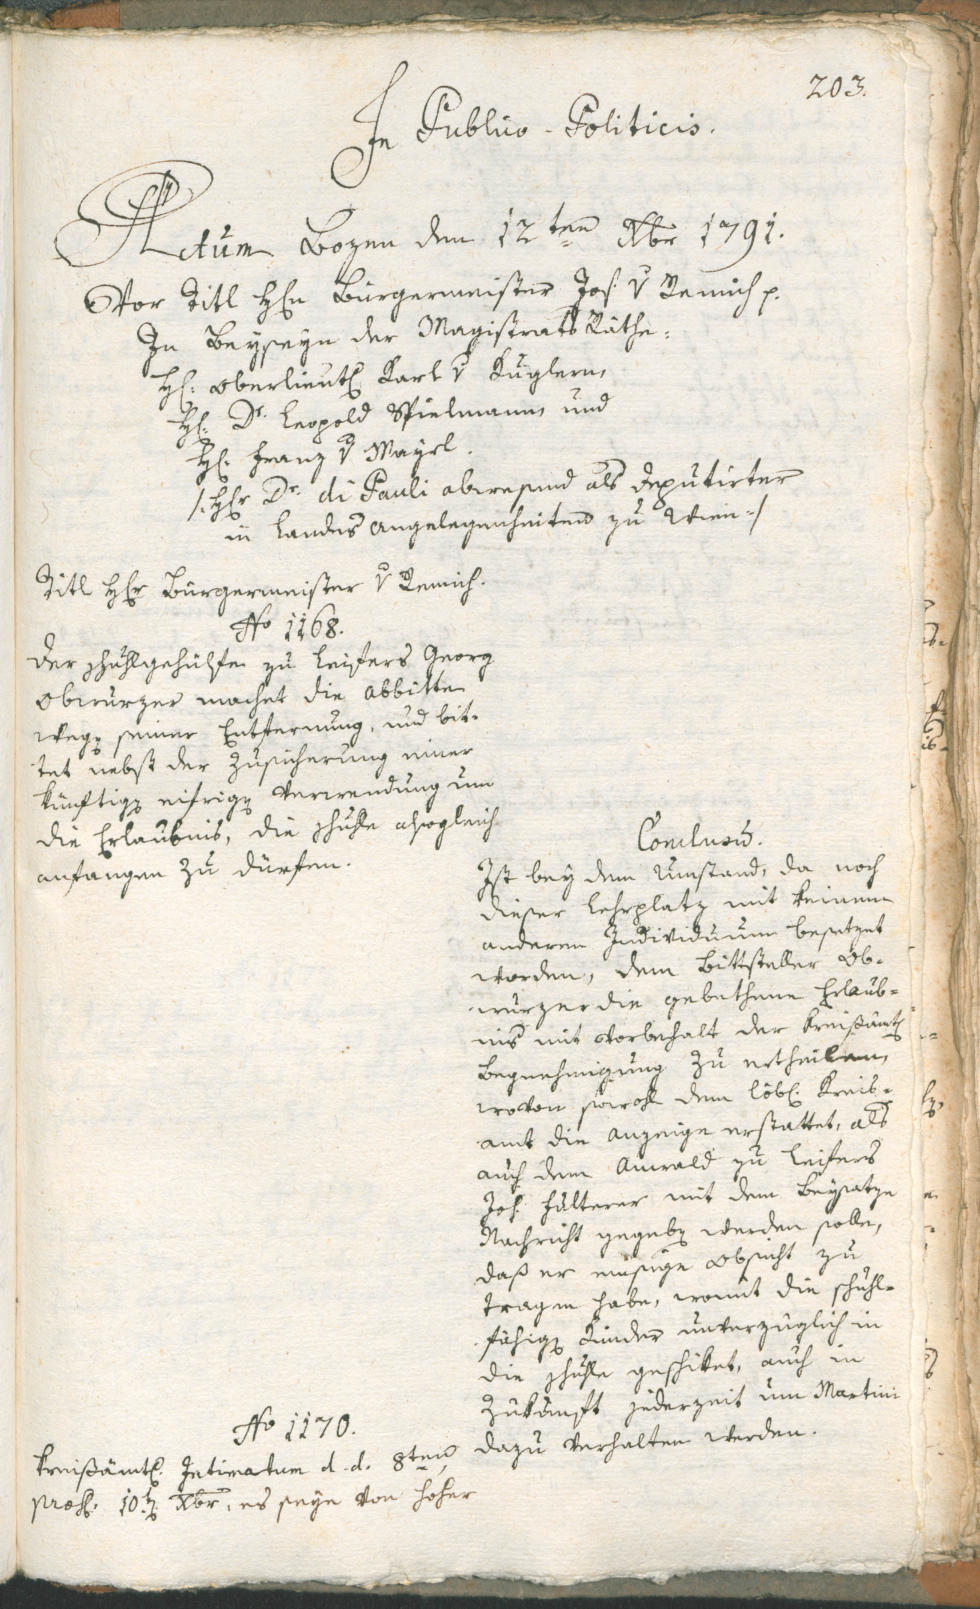 203.
In Publico-Politicis.
Actum Bozen den 12ten Xbr 1791.
Vor Titl Hhn Bürgermeister Jos: v Remich p.
In Beyseyn der Magistrats Räthe:
Hh: Oberlieut: Karl v Kuglern,
Hh: Dr. Leopold Spielmann, und
Hh: Franz v Mayrl.
/: Hhr Dr. di Pauli abwesend als Deputirter
in Landes Angelegenheiten zu Wien :/
Titl Hhr Bürgermeister v Remich.
No 1168.
Der Schullgehülfe zu Leifers Georg
Obwurzer machet die Abbitte
wegen seiner Entfernung, und bit-
tet nebst der Zusicherung einer
künftigen eifrigen Verwendung um
die Erlaubnis, die Schulle alsogleich
anfangen zu dürfen.
Conclusum.
Ist bey dem Umstand, da noch
dieser Lehrplatz mit keinem
anderen Individuum besetzet
worden, dem Bittsteller Ob-
wurzer die gebethene Erlaub-
nis mit Vorbehalt der Kreisämtl:
Begnehmigung zu ertheilen,
wovon sowohl dem löbl: Kreis-
amt die Anzeige erstattet, als
auch dem Anwald zu Leifers
Joh: Fälterer mit dem Beysatze
Nachricht gegeben werden solle,
daß er einsige Obsicht zu
tragen habe, womit die schuhl-
fähigen Kinder unverzüglich in
die Schulle geschiket, auch in
Zukunft jederzeit um Martini
dazu verhalten werden.
No 1170.
Kreisämtl: Intimatum d. d. 8ten,
præs: 10ten Xbr, es seye von hoher